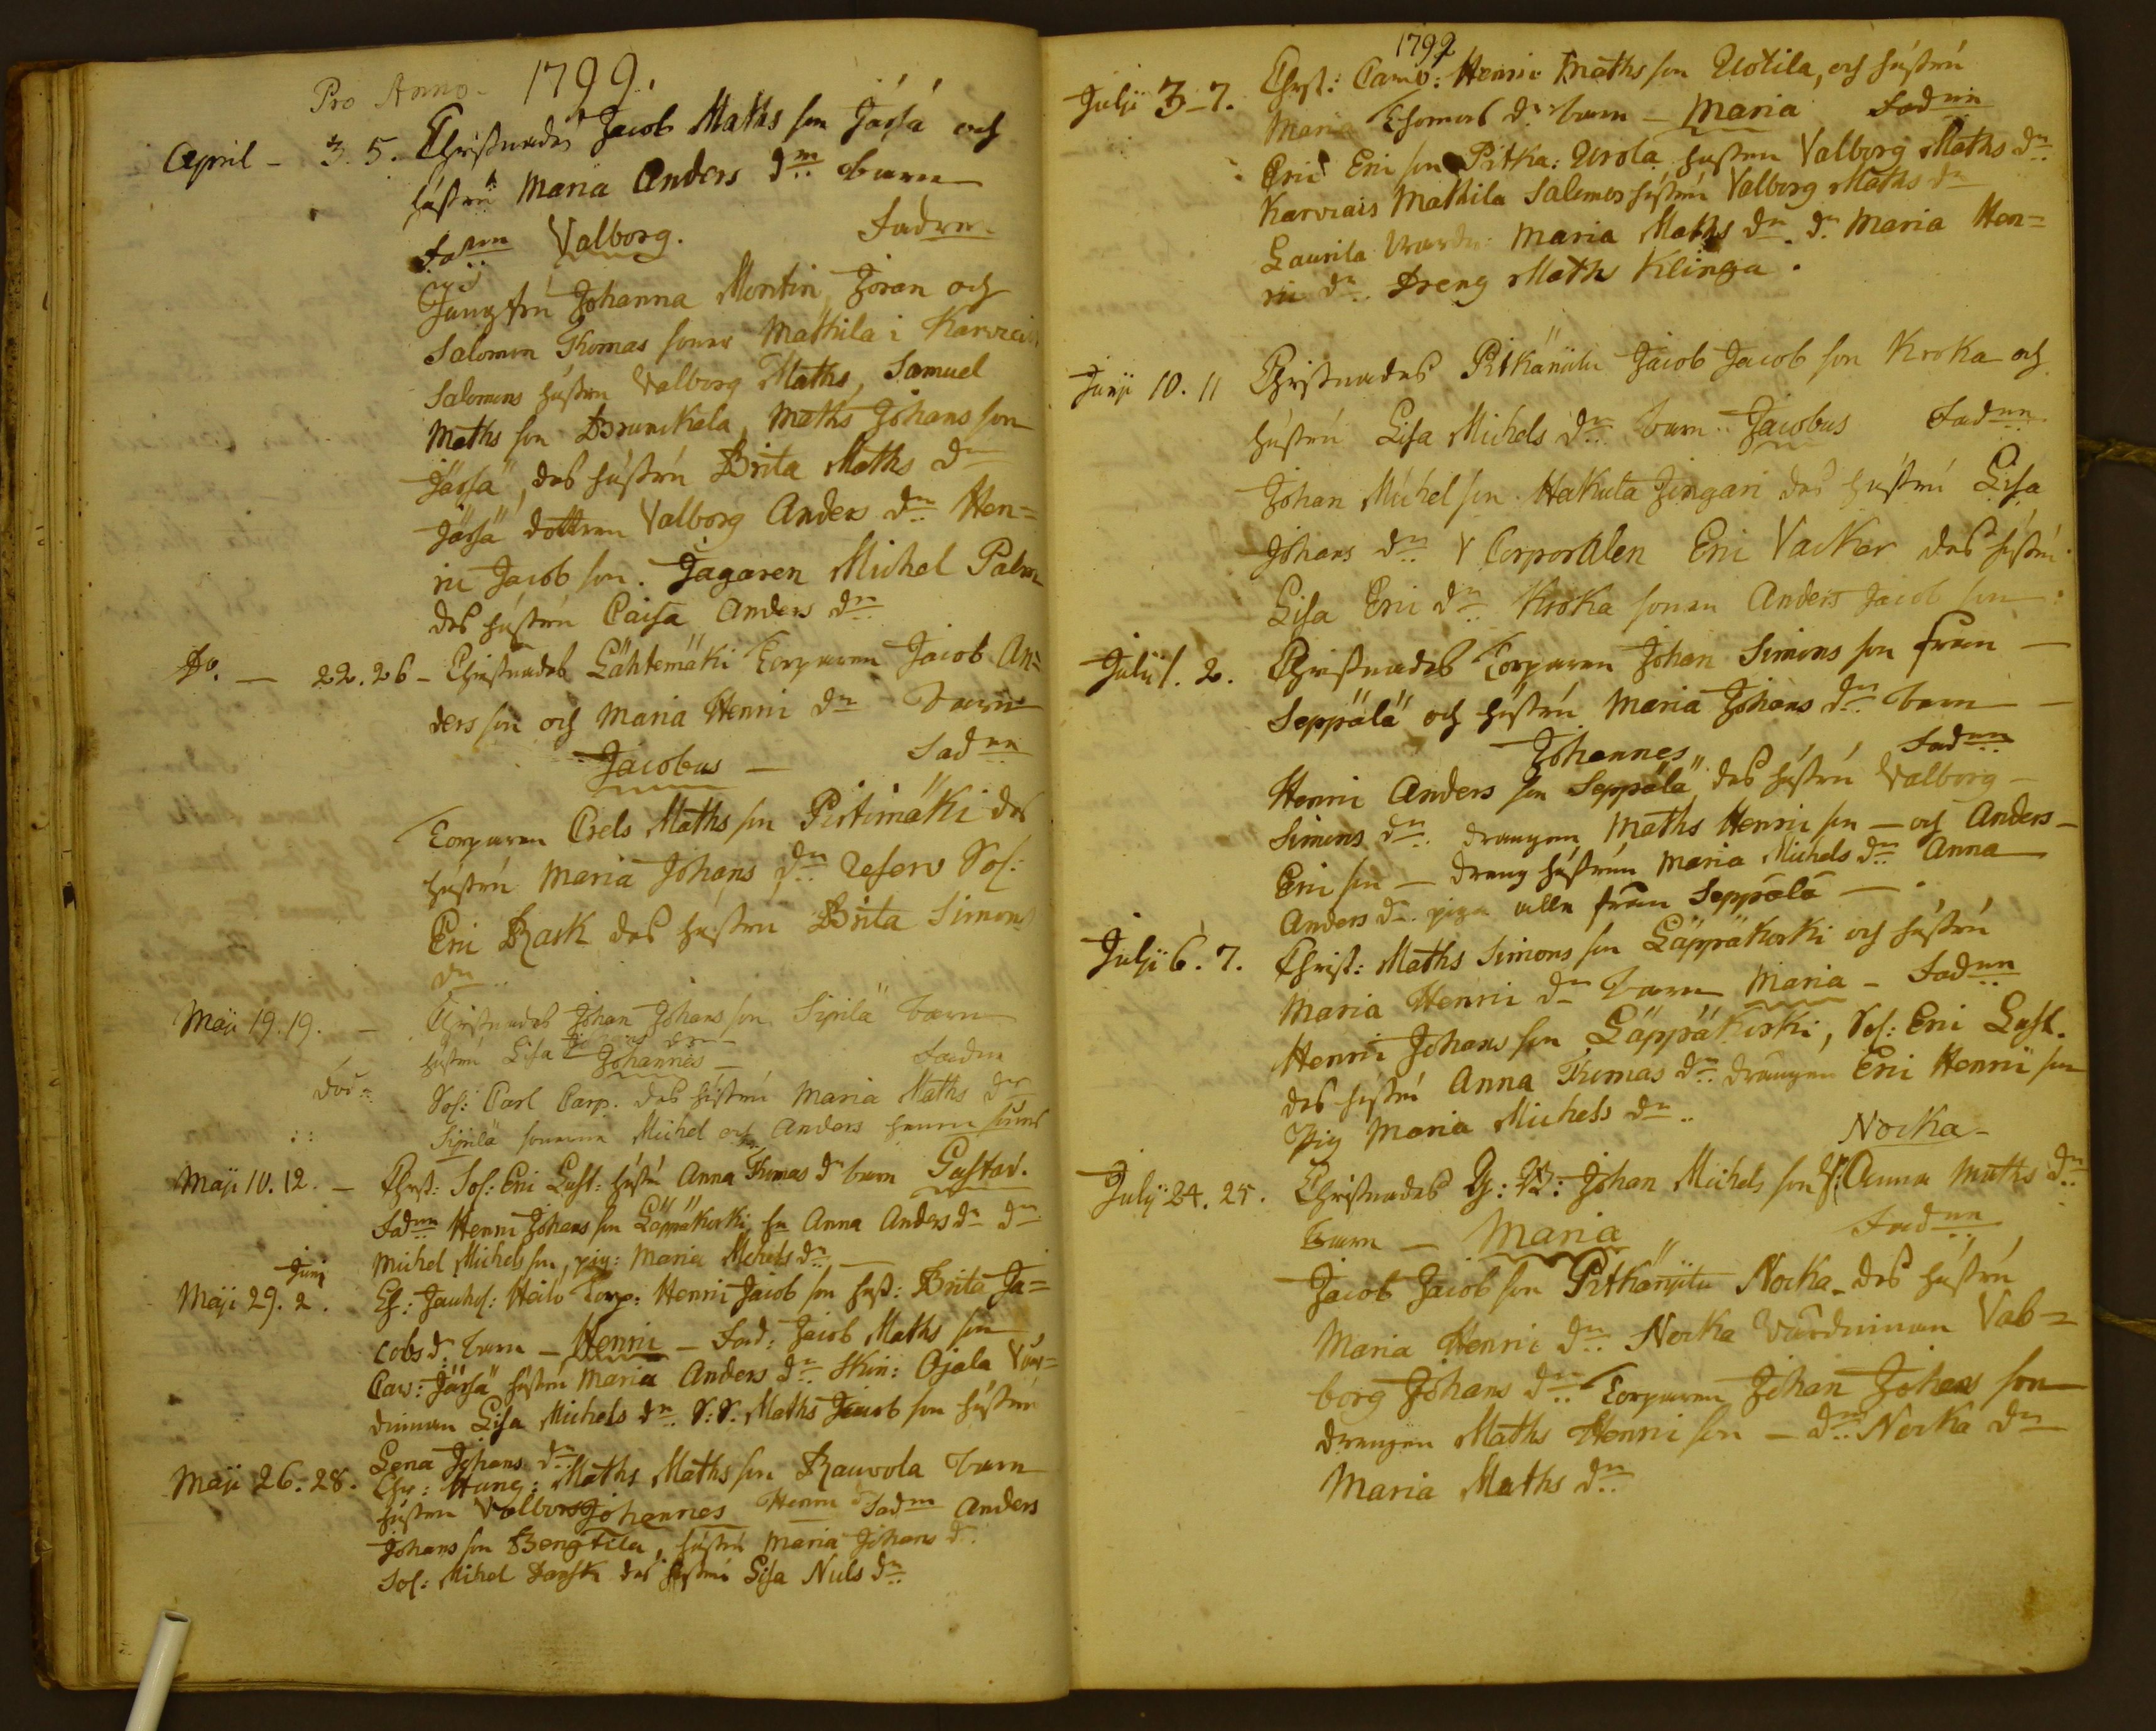 Pro Anno 1799.
April - 3. 5. Christnades Jacob Maths son Jässä och
hustru Maria Anders dn barn
Valborg. Fadrn
Jungfru Johanna Montin, Jöran och
Salomon Thomas söner Mathila i Karviais
Salomons hustru Valborg Maths, Samuel
Maths son Brunikala, Maths Johans son
Jässä, des hustru Brita Maths dn
Jässä dottren Valborg Anders dn Hen=
ric Jacob son. Jägaren Michel Palm
des hustru Caisa Anders dn
Do. — 22. 26 - Christnades Lähtemäki Torparen Jacob An=
ders son och Maria Henric dn barn
Jacobus — Fadnn
Torparen Axels Maths son Pirtimäki des
hustru Maria Johans dn Reserv Sol:
Eric Rask des hustru Brita Simons
dn
Maji 19. 19. — Christnades Johan Johans son Sipilä barn
hustru Lisa Johannes — Fadnn
Sol: Carl Carp. des hustru Maria Maths dn
Sipilä sönerna Michel och Anders
Maji 10. 12. — Christ: Sol: Eric Lust: hustru Anna Thomas dn barn Gustav.
Fadnn Henric Johans son Läppäkoski hu Anna Anders dn
Michel Michels son, pig: Maria Michels dn —
Junj
Maji 29. 2. Heilö Torp: Henric Jacob son hust: Brita Ja=
cobs d: barn — Henric — Fad: Jacob Maths son
Jässä hustru Maria Anders dn Ojala Vär=
dinnan Lisa Michels dn. S:S. Maths Jacob son hustru
Lena Johans dn
Maji 26. 28. Chr: Maths Maths son Rauvola barn
hustru Valborg Johannes Henric d Fadnn Anders
Johans son Bengtila, hustru Maria Johans d
Sol: Mihel Dansk des hustru Lisa Nils dn
1799
Julji 3-7. Chrst: Henric Maths son Uotila, och hustru
Maria Thomas dn barn — Maria Fadnn
Eric Eric son Pitka: Urola hustru Valborg Maths dn
Karviais Mathila Salomos hustru Valborg Maths dn
Laurila Maria Maths dn. dn Maria Hen=
ric dn. Dreng Maths Klinga.
Junji 10. 11 Christnades Pitkänitu Jacob Jacob son Kroka och
hustru Lisa Michels dn barn Jacobus Fadnn
Johan Michel son. Hakula Jungari des hustru Lisa
Johans dn V Corporalen Eric Vacker des hustru
Lisa Eric dn Kroka sonen Anders Jacob son
Julii 1. 2. Christnades Torparen Johan Simons son från —
Seppälä och hustru Maria Johans dn barn —
Johannes Fadnn
Henric Anders son Seppälä des hustru Valborg —
Simons dn drengen Maths Henric son — och Anders —
Eric son — dreng hustrun Maria Michels dn Anna
Anders dn piga alla från Seppälä —
Julji 6. 7. Christ: Maths Simons son Läppäkoski och hustru
Maria Henric dn barn Maria - Fadnn
Henric Johans son Läppäkoski, Sol: Eric Lust.
des hustru Anna Thomas dn drängen Eric Henric son
Pig Maria Michels dn
Nocka -
July 24. 25. Christnades Johan Michels son Anna Maths dn
barn — Maria Fadnn
Jacob Jacob son Pitkänjitu Nocka des hustru
Maria Henric dn Nocka Värdinnan Val=
borg Johans dn Torparen Johan Johans son
drengen Maths Henric son — dn Nocka dn
Maria Maths dn